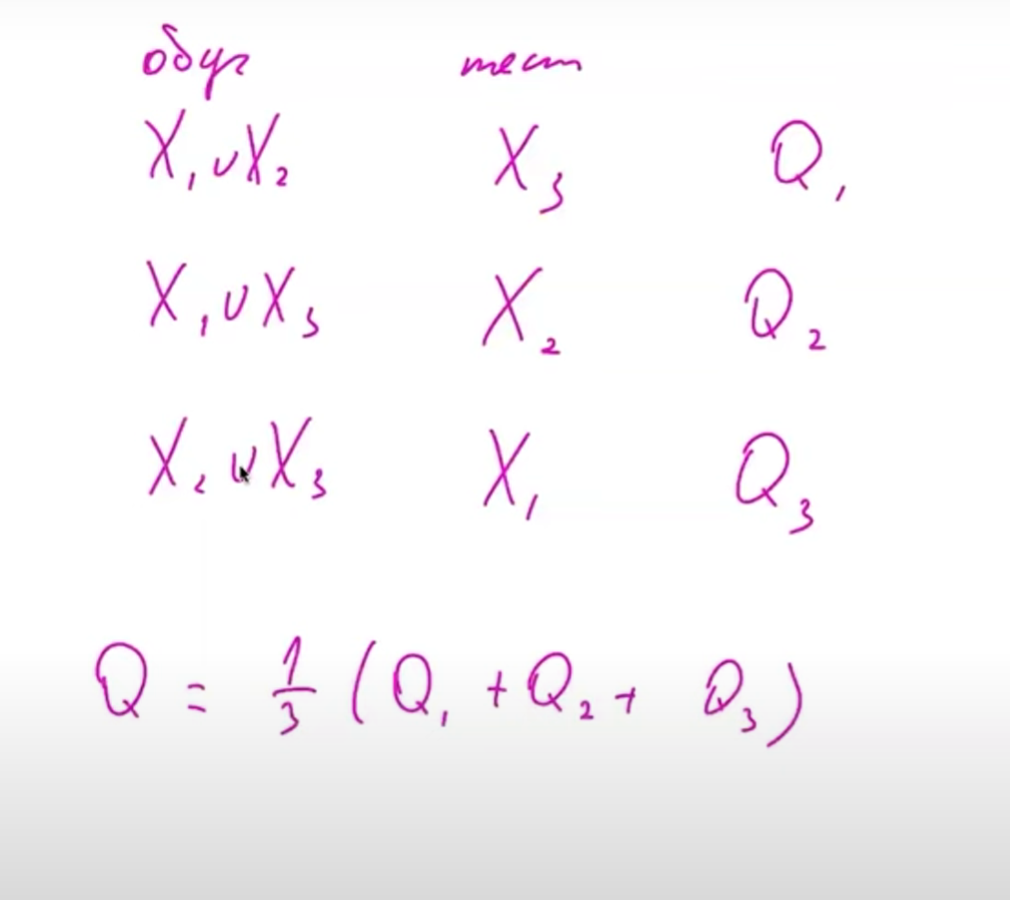 обуч тест
X₁ ∪ X₂ X₃ Q₁
X₁ ∪ X₃ X₂ Q₂
X₂ ∪ X₃ X₁ Q₃
Q = 1/3 (Q₁ + Q₂ + Q₃)